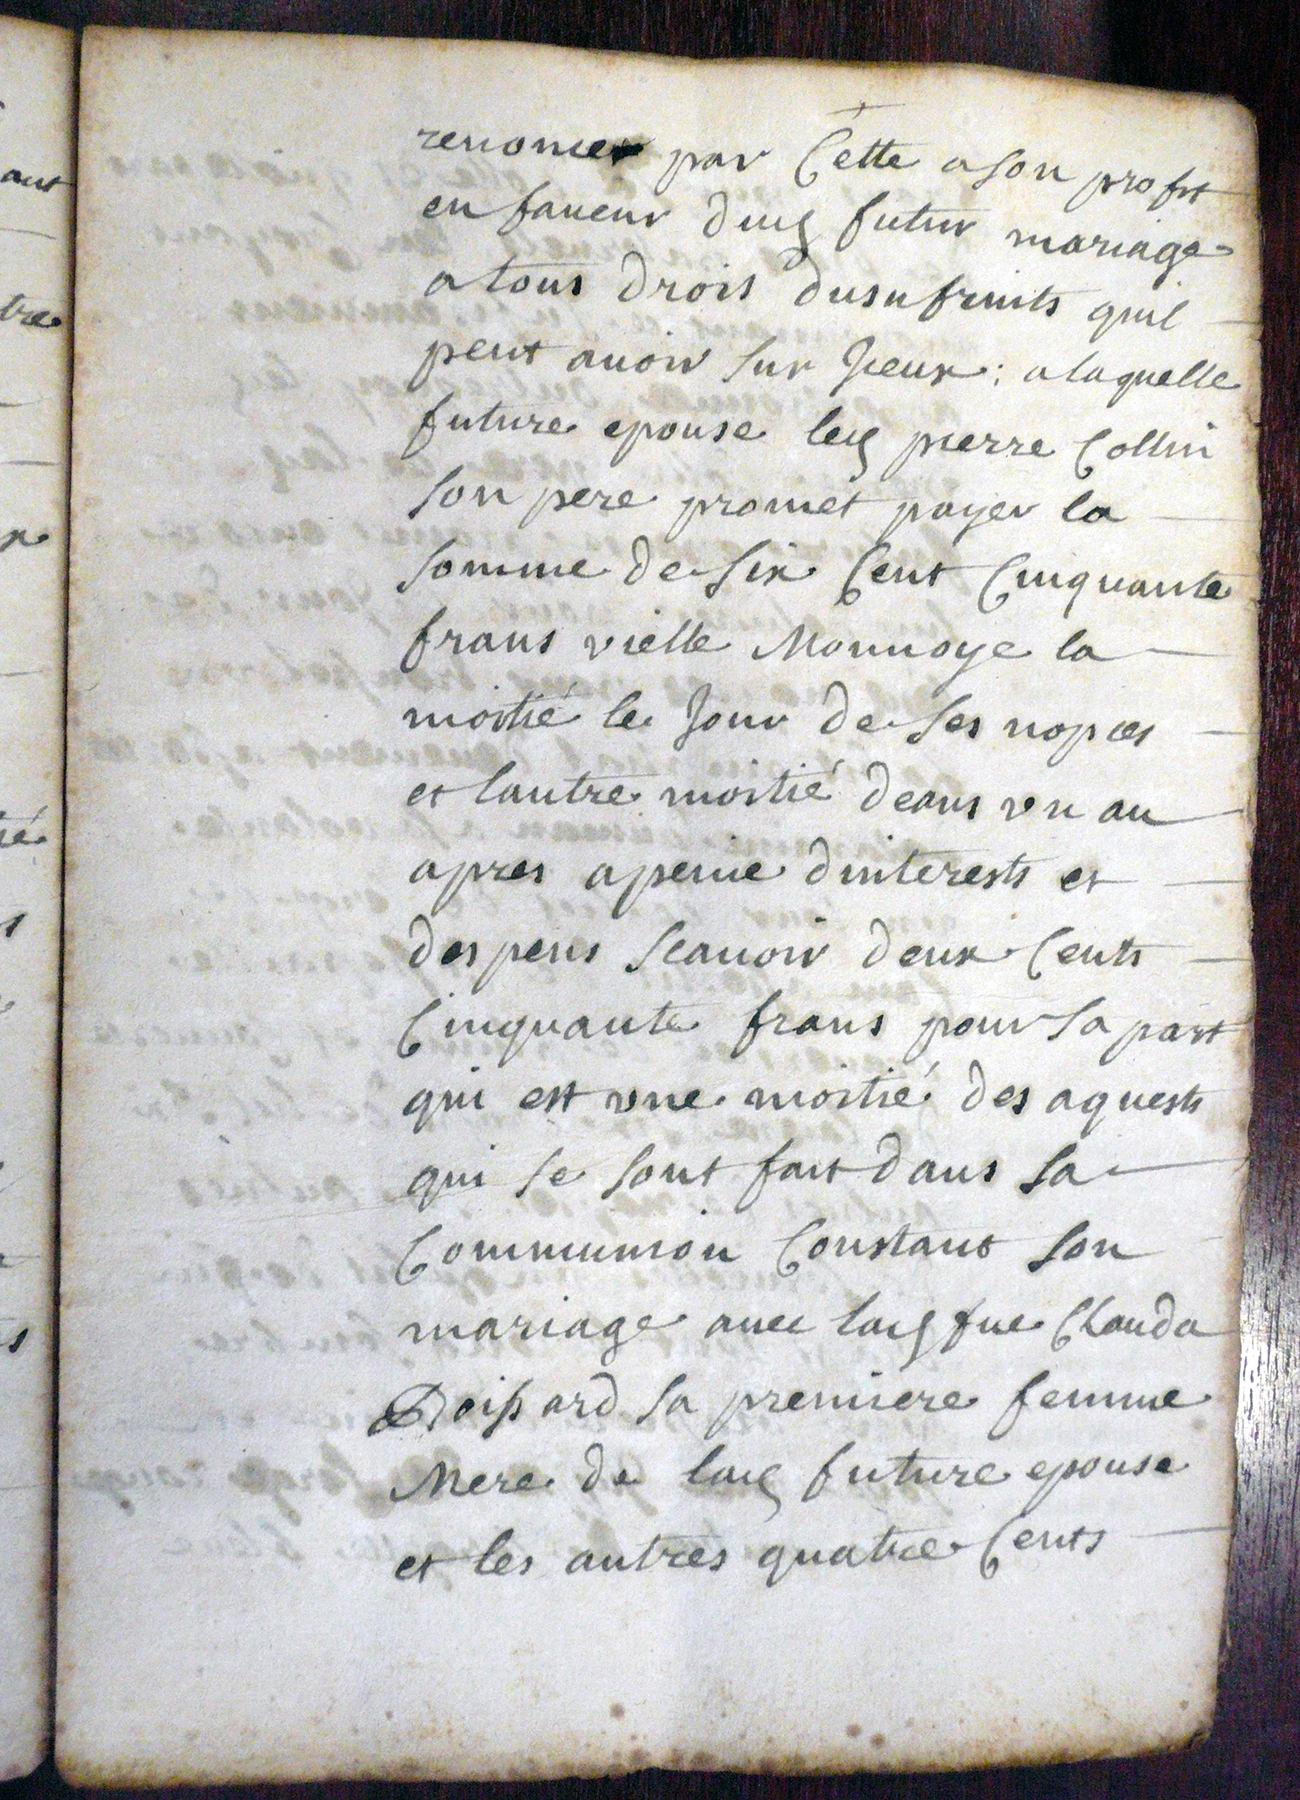 renoncer par Cette a son profit
en faueur dud futur mariage
a tous drois dusufruits quil
peut auoir sur Jceux : a laquelle
future epouse led pierre Collin
son pere promet payer la
somme de six Cent Cinquante
frans vielle Monnoye la
moitié le Jour de ses nopces
et lautre moitié deans vn an
apres a peine dinterests et
despens scauoir deux Cents
Cinquante frans pour sa part
qui est vne moitié des aquests
qui se sont fait dans sa
Communion Constant son
mariage auec lad fue Clauda
Boissard sa premiere femme
Mere de lad future epouse
et les autres quatre Cents
ant
tre